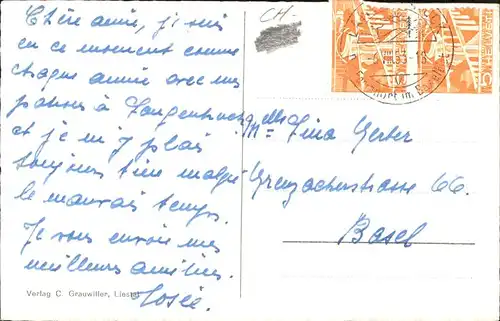 Chère amie, je suis
en ce moment comme
chaque année avec mes
patrons à Langenbruck
et je m'y plais
toujours bien malgré
le mauvais temps.
Je vous envoie mes
meilleures amitiés.
Josée.
CH-
Mlle Lina Gerber
Grenzacherstrasse 66.
Basel
Verlag C. Grauwiller, Liestal
HELVETIA